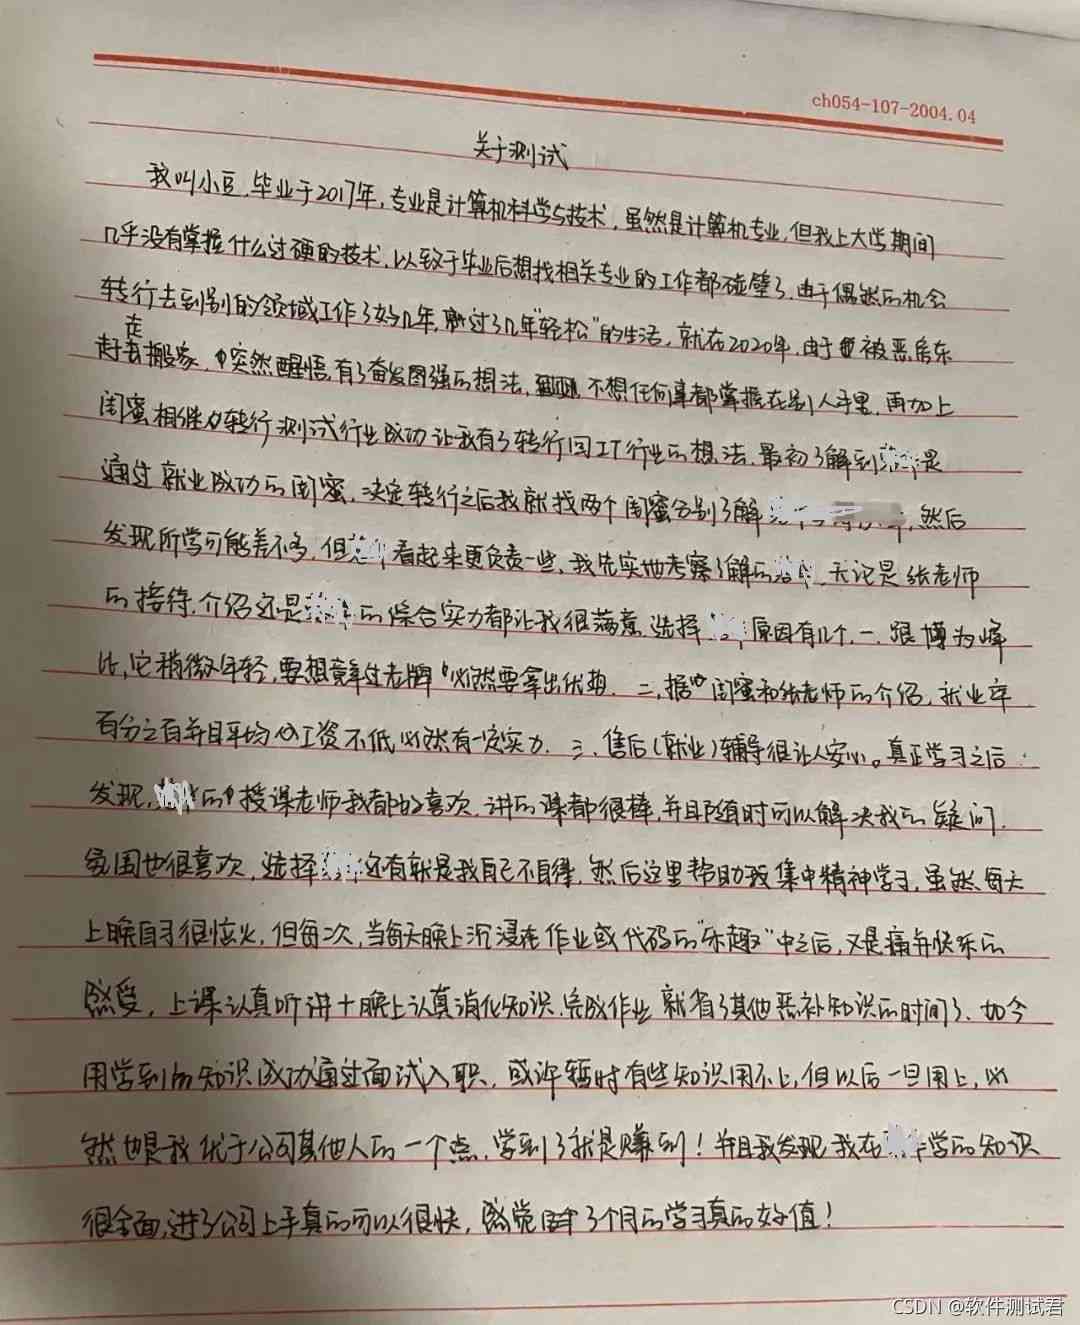 ch054-107-2004.04
关于测试
我叫小豆,毕业于2017年,专业是计算机科学与技术,虽然是计算机专业,但我上大学期间
几乎没有掌握什么过硬的技术,以致于毕业后想找相关专业的工作都碰壁了,由于偶然的机会
转行去到别的领域工作了好几年,过了几年"轻松"的生活,就在2020年,由于被恶房东
赶走搬家,突然醒悟,有了奋发图强的想法,不想任何事都掌握在别人手里,再加上
闺蜜相继转行测试行业成功让我有了转行回IT行业的想法,最初了解到是
通过就业成功的闺蜜,决定转行之后我就找两个闺蜜分别了解,然后
发现所学可能差不多,但看起来更负责一些,我先实地考察了解的,无论是张老师
的接待,介绍还是的综合实力都让我很满意,选择原因有几个,一、跟博为峰
比,它稍微年轻,要想竞过老牌必然要拿出优势.二,据闺蜜和张老师的介绍,就业率
百分之百并且平均工资不低必然有一定实力.三、售后(就业)辅导很让人安心。真正学习之后
发现,的授课老师我都的喜欢,讲的课都很棒,并且随时可以解决我的疑问,
氛围也很喜欢,选择还有就是我自己不自律,然后这里帮助我集中精神学习,虽然每天
上晚自习很恼火,但每次,当每天晚上沉浸在作业或代码的"乐趣"中之后,又是痛并快乐的
感受,上课认真听讲+晚上认真消化知识,完成作业就省了其他恶补知识的时间了、如今
用学到的知识成功通过面试入职,或许暂时有些知识用不上,但以后一旦用上,必
然也是我优于公司其他人的一个点,学到了就是赚到!并且我发现我在学的知识
很全面,进了公司上手真的可以很快,感觉这3个月的学习真的好值!
CSDN @软件测试君